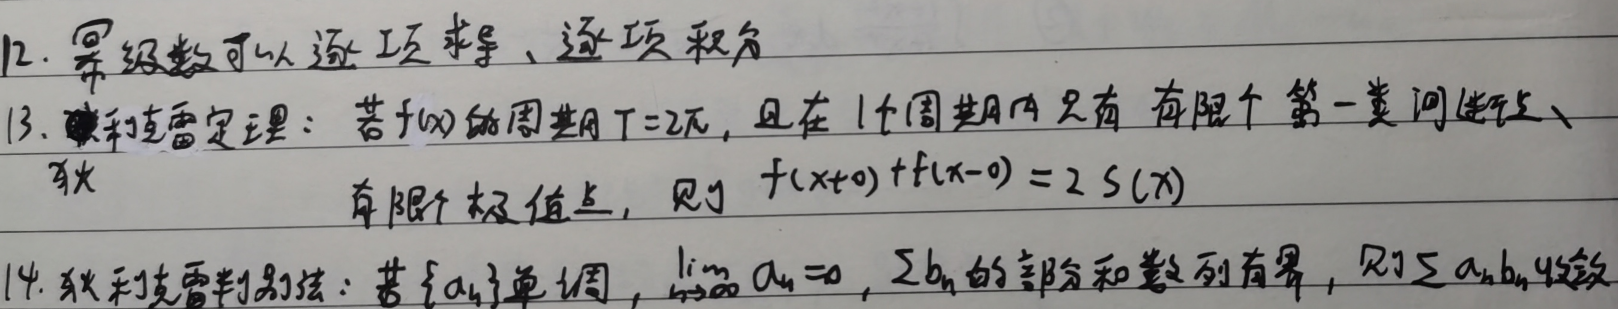 12. 幂级数可以逐项求导、逐项积分
13. 狄利克雷定理：若f(x)的周期T=2π，且在1个周期内只有有限个第一类间断点、
有限个极值点，则 f(x+0)+f(x-0)=2S(x)
14. 狄利克雷判别法：若{aₙ}单调，lim n→∞ aₙ=0，Σbₙ的部分和数列有界，则Σaₙbₙ收敛